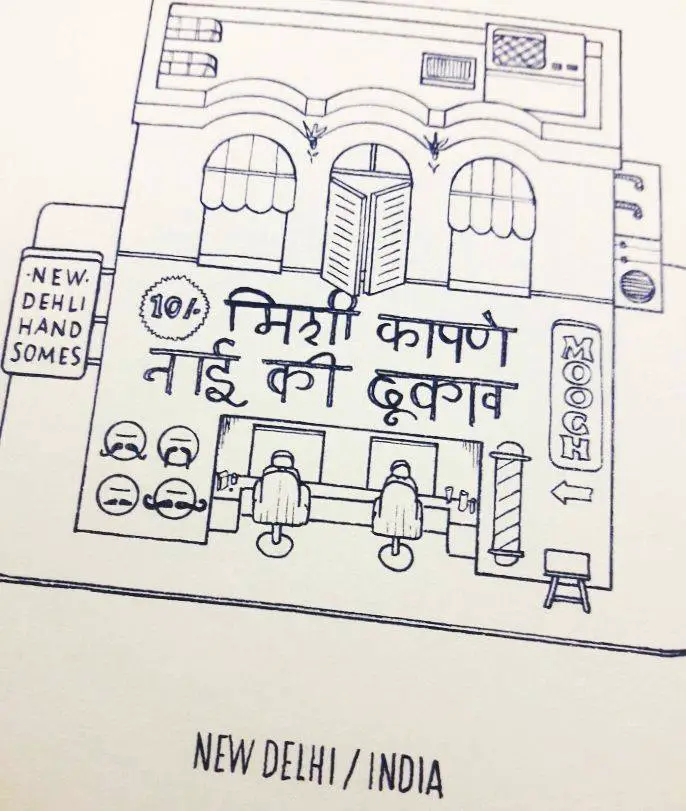 NEW
DEHLI
HAND
SOMES
10/-
मिशी कापणे
नाई की
MOOCH
NEW DELHI / INDIA